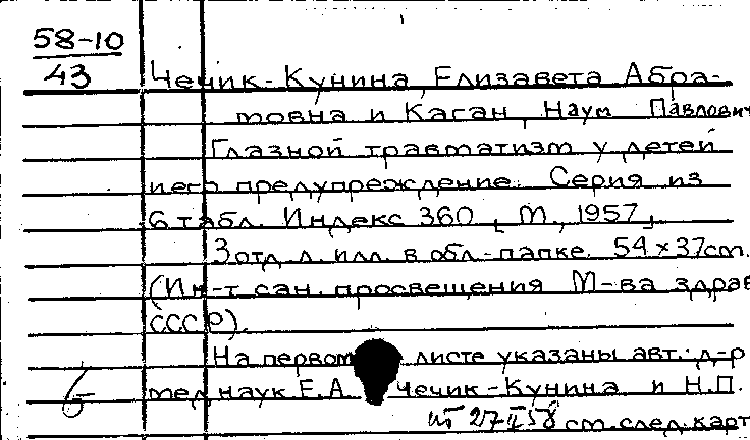 58-10
43
Чечик-Кунина, Елизавета Абра-
мовна и Каган, Наум Павлович
Глазной травматизм у детей
и его предупреждение. Серия из
6 табл. Индекс 360 [М., 1957].
3 отд. л. илл. в обл.-папке. 54×37см.
(Ин-т сан. просвещения М-ва здрав
СССР).
На первом листе указаны авт.: д-р
мед. наук Е.А. Чечик-Кунина и Н.П.
27 II 58 см. след. карт